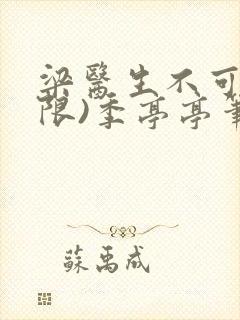 梁醫生不可
限)季亭亭筆
蘇禹成